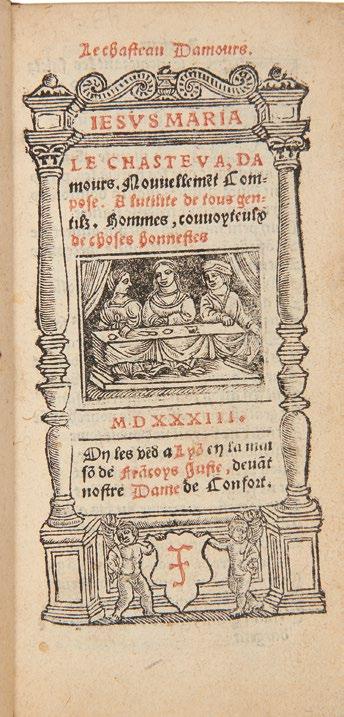 Le chasteau Damours.
IESVS MARIA
LE CHASTEVA, DA
mours. Nouuellemẽt Com-
pose. A lutilite de tous gen-
tilz. Hommes, couuoyteulx
de choses honnestes
M.D.XXXIII.
On les vẽd a Lyõ en la mai
sõ de Frãcoys Juste, deuãt
nostre Dame de Confort.
F